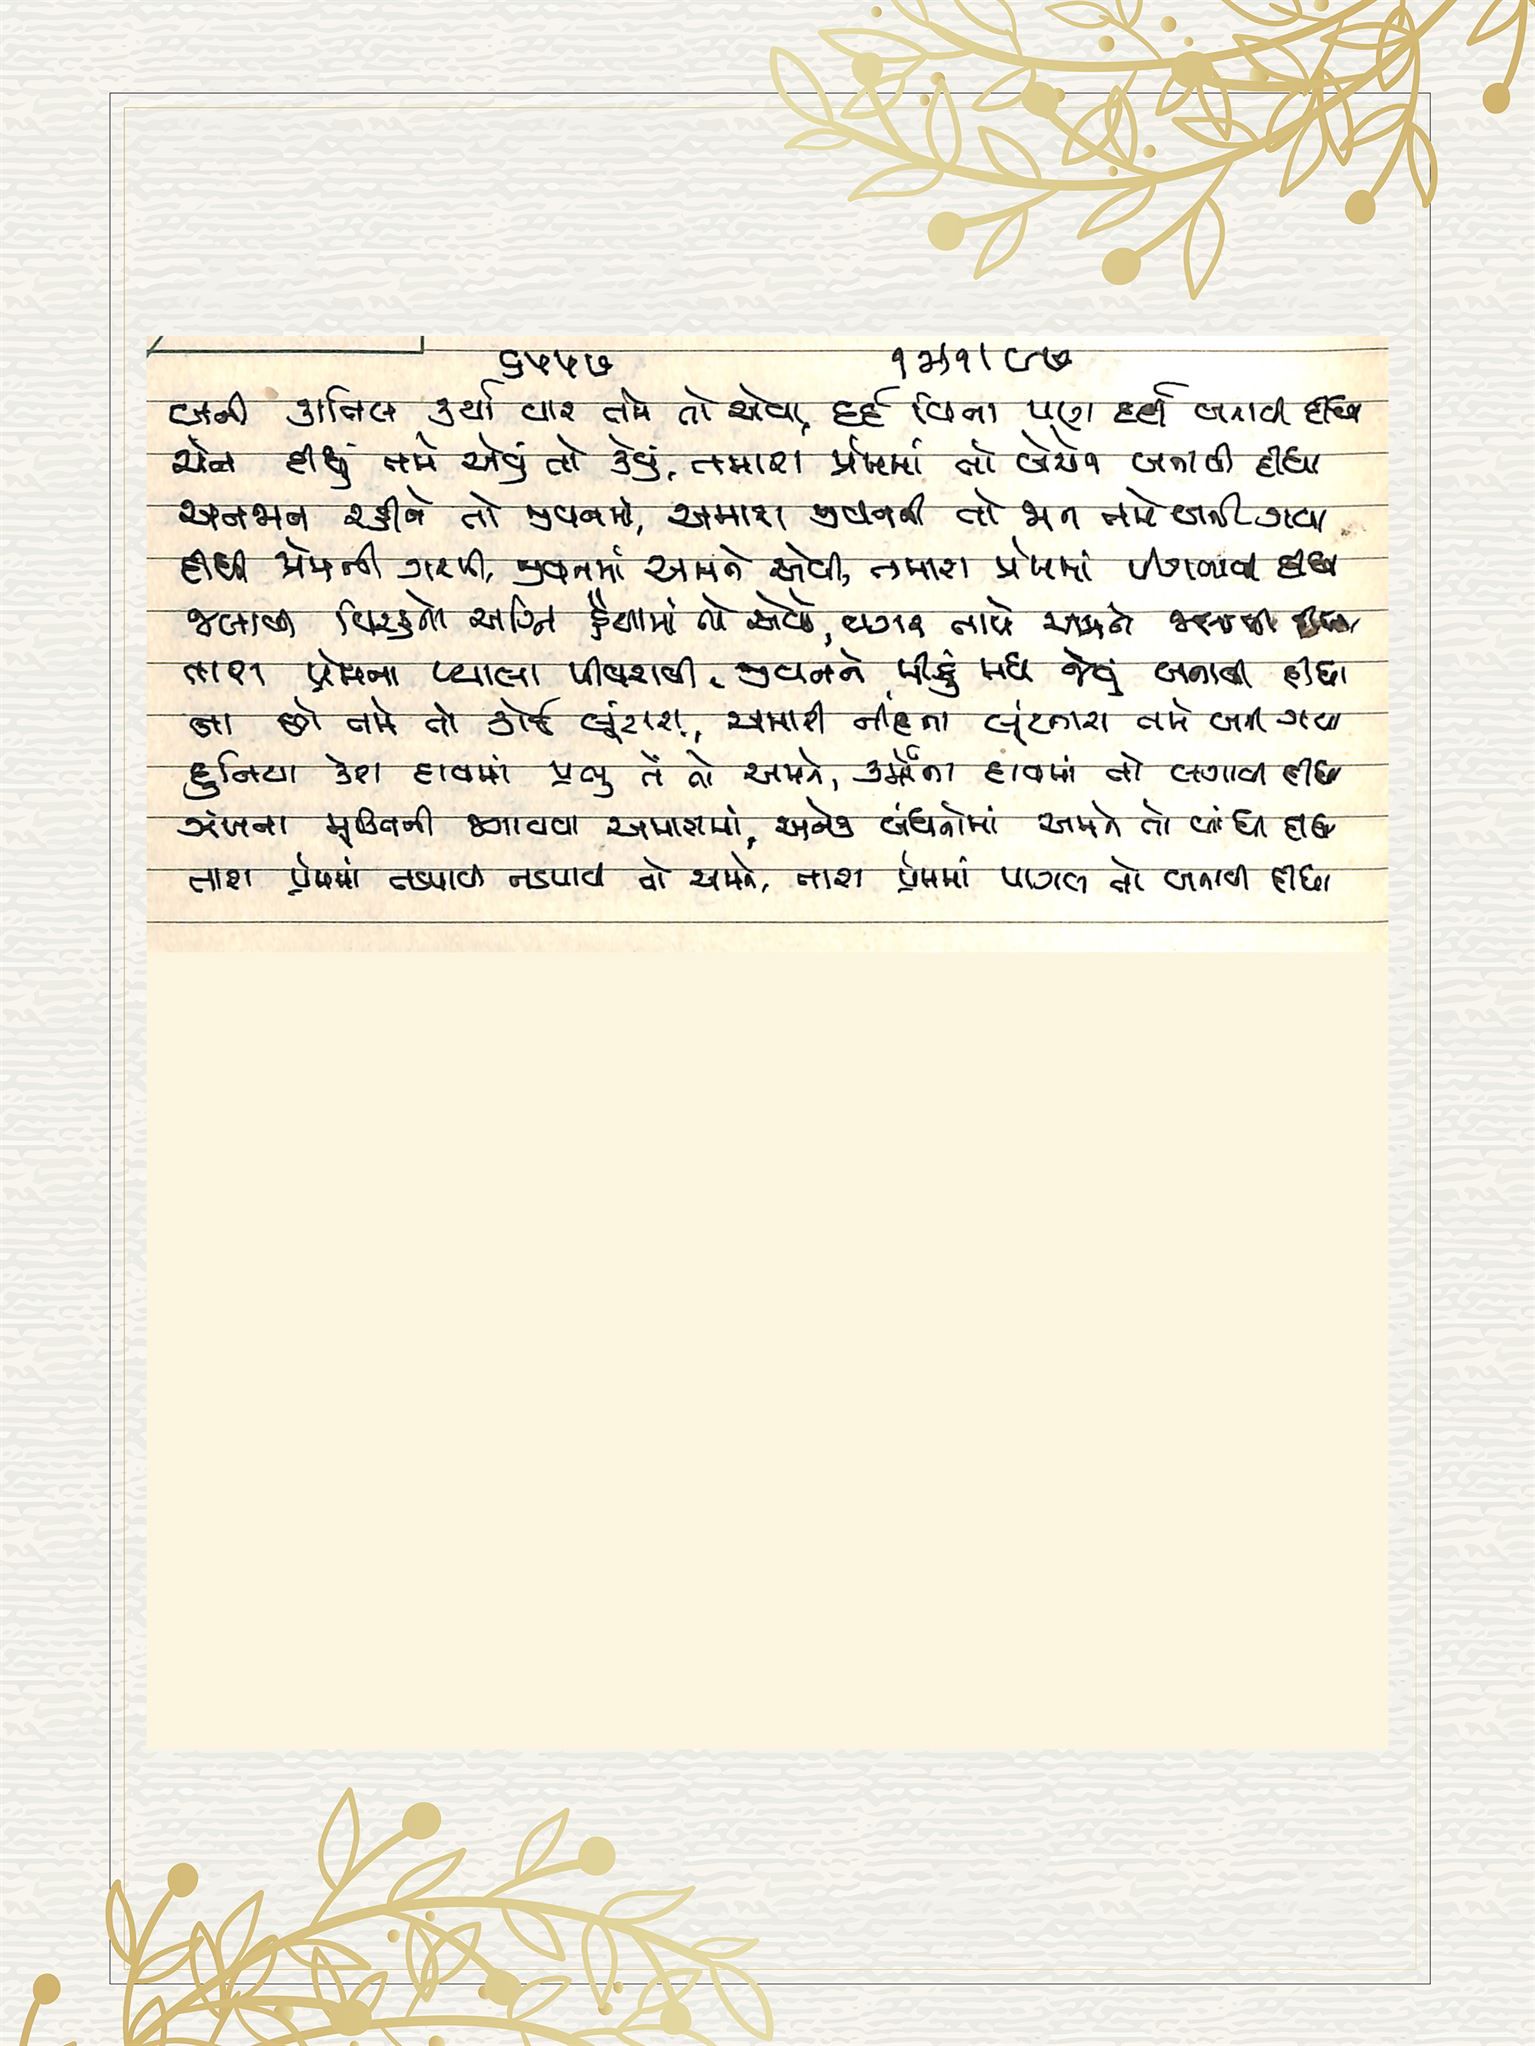 ૬૫૫૭ ૧૭।૧।૯૭
બની કાતિલ કર્યા વાર તમે તો એવા, દર્દ વિના પણ દર્દી બનાવી દીધા
ચેન દીધું તમે એવું તો કેવું, તમારા પ્રેમમાં તો બેચેન બનાવી દીધા
અનજાન રહીને તો જીવનમાં, અમારા જીવનની તો જાન તમે બની ગયા
દીધી પ્રેમની ગરમી જીવનમાં અમને એવી, તમારા પ્રેમમાં પીગળાવી દીધા
જલાવી વિરહનો અગ્નિ હૈયામાં તો એવો, વગર તાપે અમને દીધા
તારા પ્રેમના પ્યાલા પીવરાવી, જીવનને મીઠું મધ જેવું બનાવી દીધા
ના છો તમે તો કોઈ લૂંટારા, અમારી નીંદના લૂંટનારા તમે બની ગયા
દુનિયા કેરા દાવમાં પ્રભુ તેં તો અમને, કર્મોના દાવમાં તો લગાવી દીધા
ઝંખના મુક્તિની જગાવવા અમારામાં, અનેક બંધનોમાં અમને તો બાંધી દીધા
તારા પ્રેમમાં તડપાવી તડપાવી તો અમને, તારા પ્રેમમાં પાગલ તો બનાવી દીધા